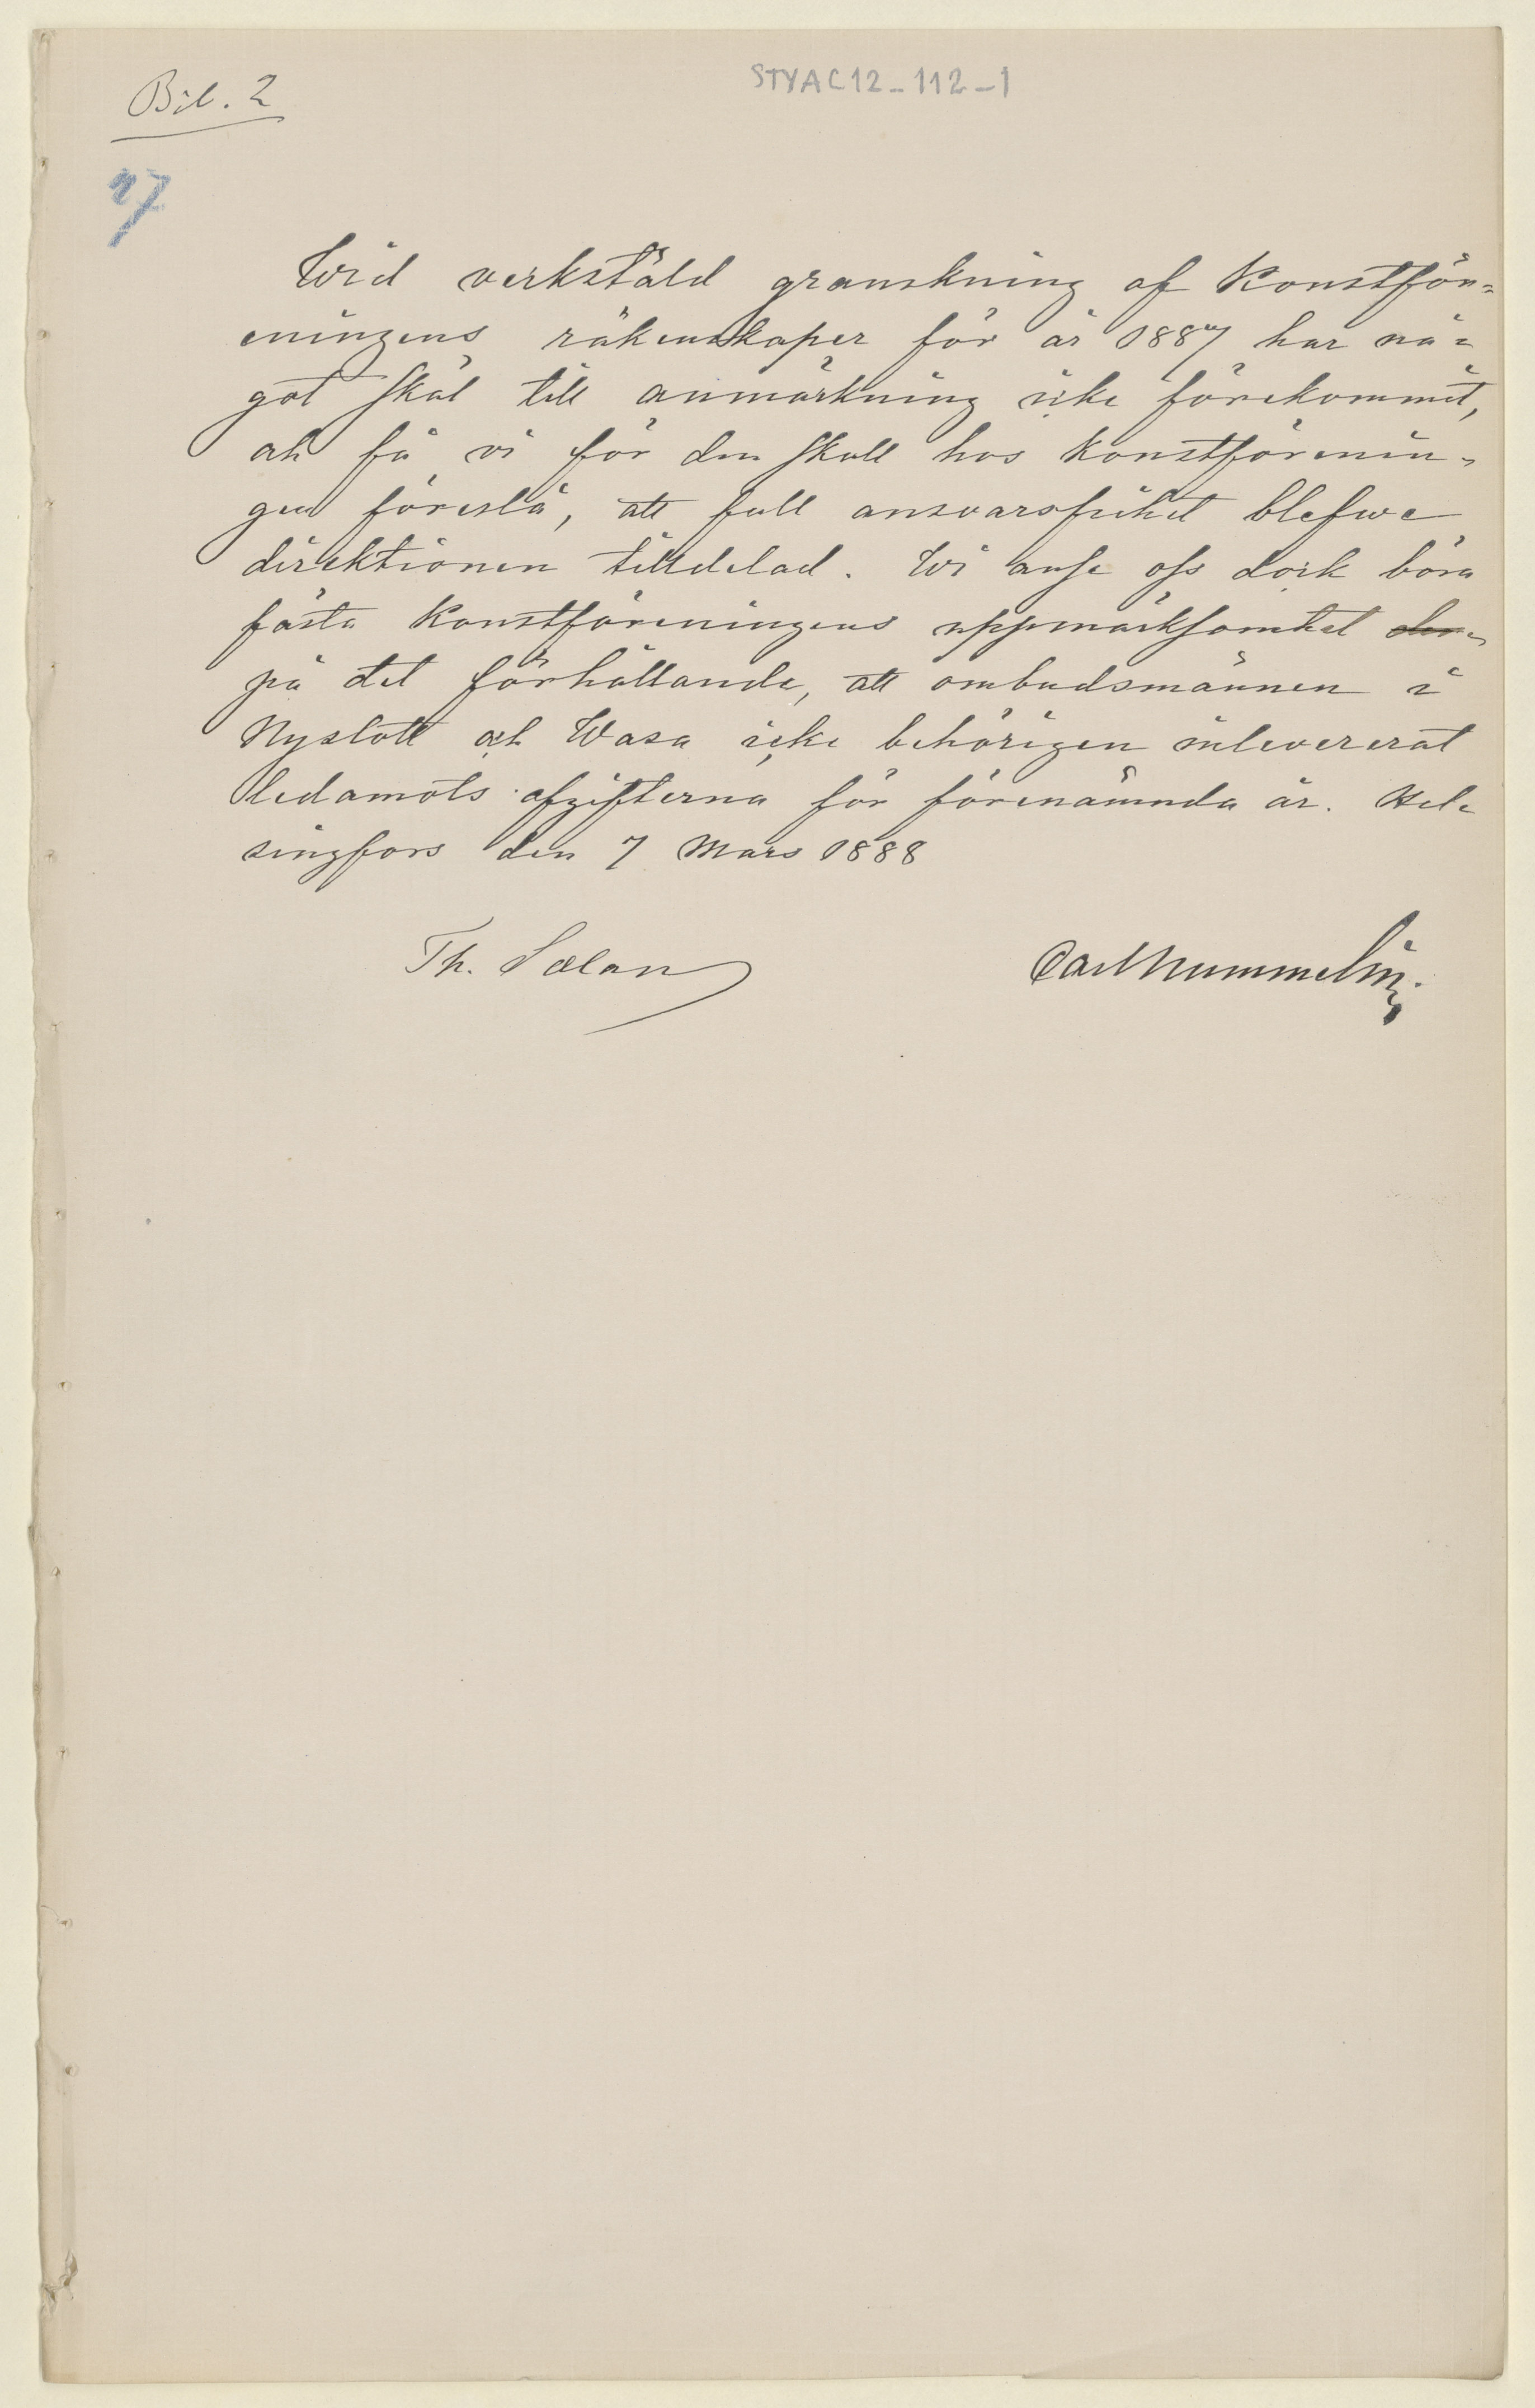 Bil. 2
STYAC12-112-1
27
Wid verkstäld granskning af Konstför=
eningens räkenskaper för år 1887 har nå=
got skäl till anmärkning icke förekommit,
och få vi för den skull hos Konstförenin=
gen föreslå, att full ansvarsfrihet blefwe
direktionen tilldelad. Wi anse oss dock böra
fästa Konstföreningens uppmärksomhet der=
på det förhållande, att ombudsmännen i
Nyslott och Wasa icke behörigen inlevererat
ledamots afgifterna för förenämnda år. Hel=
singfors den 7 Mars 1888
Th. Sælan
Carl Nummelin.